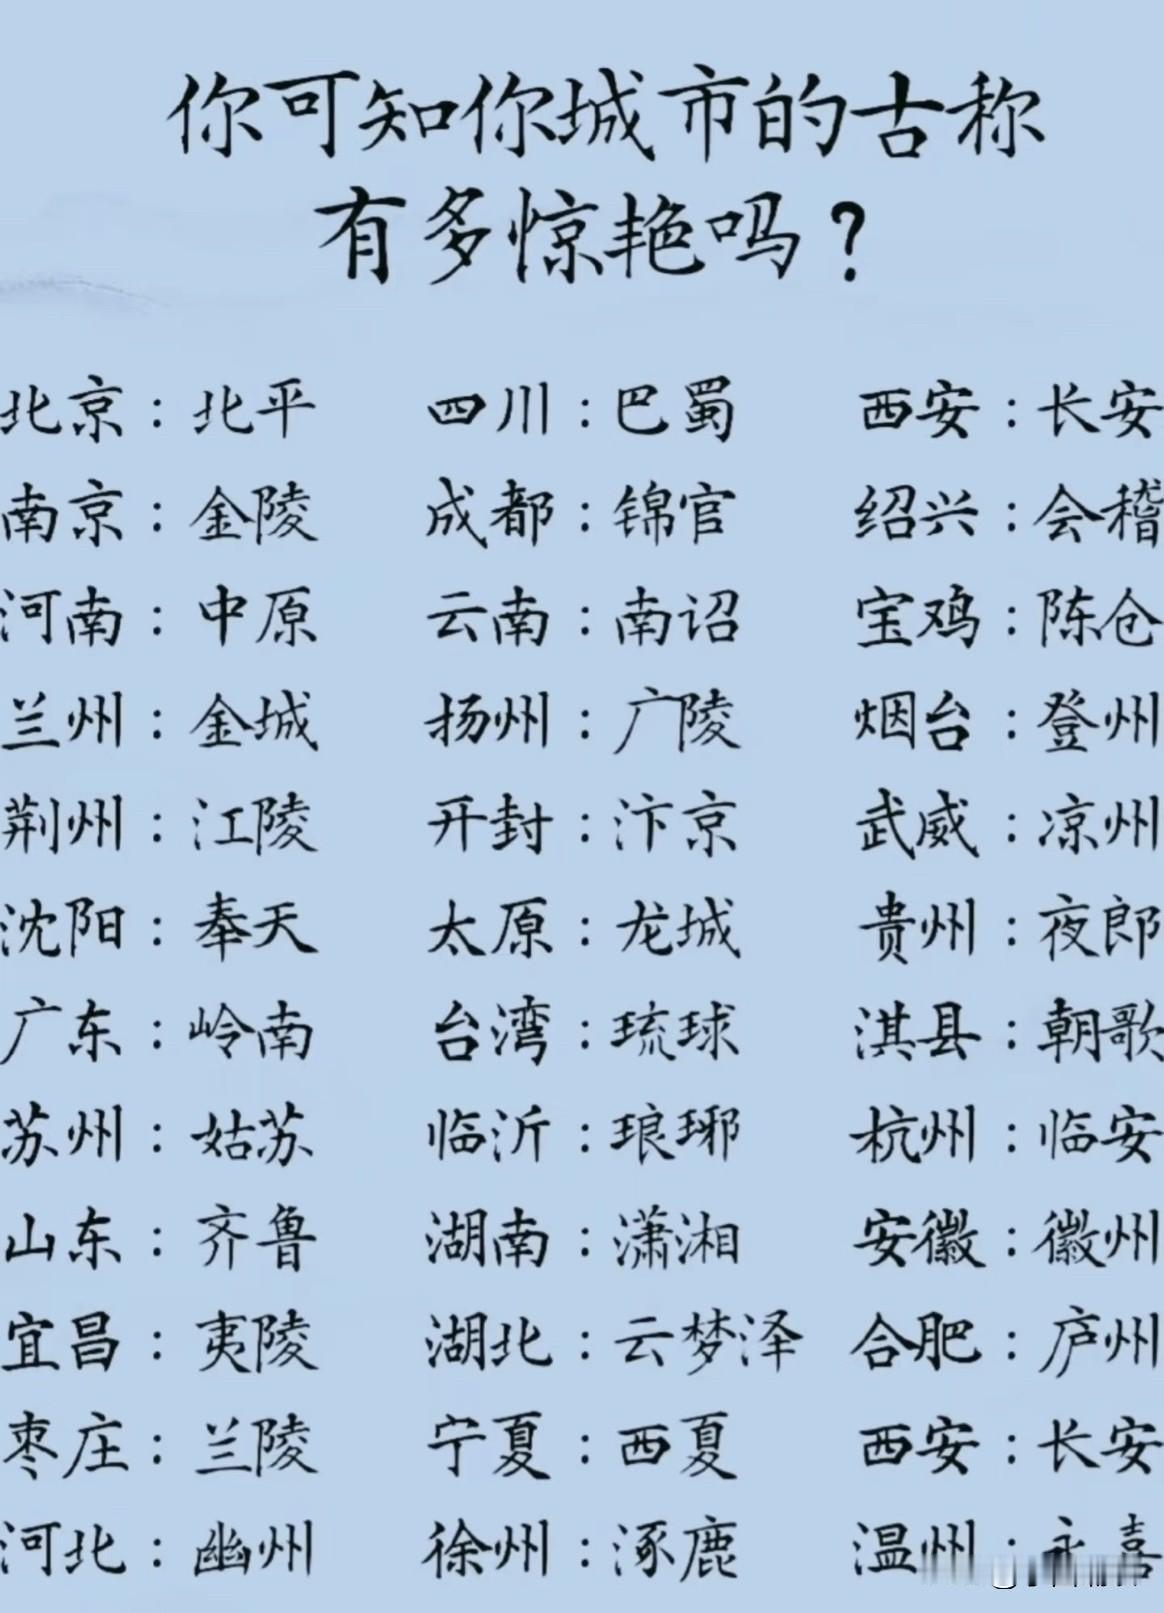 你可知你城市的古称
有多惊艳吗？
北京：北平 四川：巴蜀 西安：长安
南京：金陵 成都：锦官 绍兴：会稽
河南：中原 云南：南诏 宝鸡：陈仓
兰州：金城 扬州：广陵 烟台：登州
荆州：江陵 开封：汴京 武威：凉州
沈阳：奉天 太原：龙城 贵州：夜郎
广东：岭南 台湾：琉球 淇县：朝歌
苏州：姑苏 临沂：琅琊 杭州：临安
山东：齐鲁 湖南：潇湘 安徽：徽州
宜昌：夷陵 湖北：云梦泽 合肥：庐州
枣庄：兰陵 宁夏：西夏 西安：长安
河北：幽州 徐州：涿鹿 温州：永喜